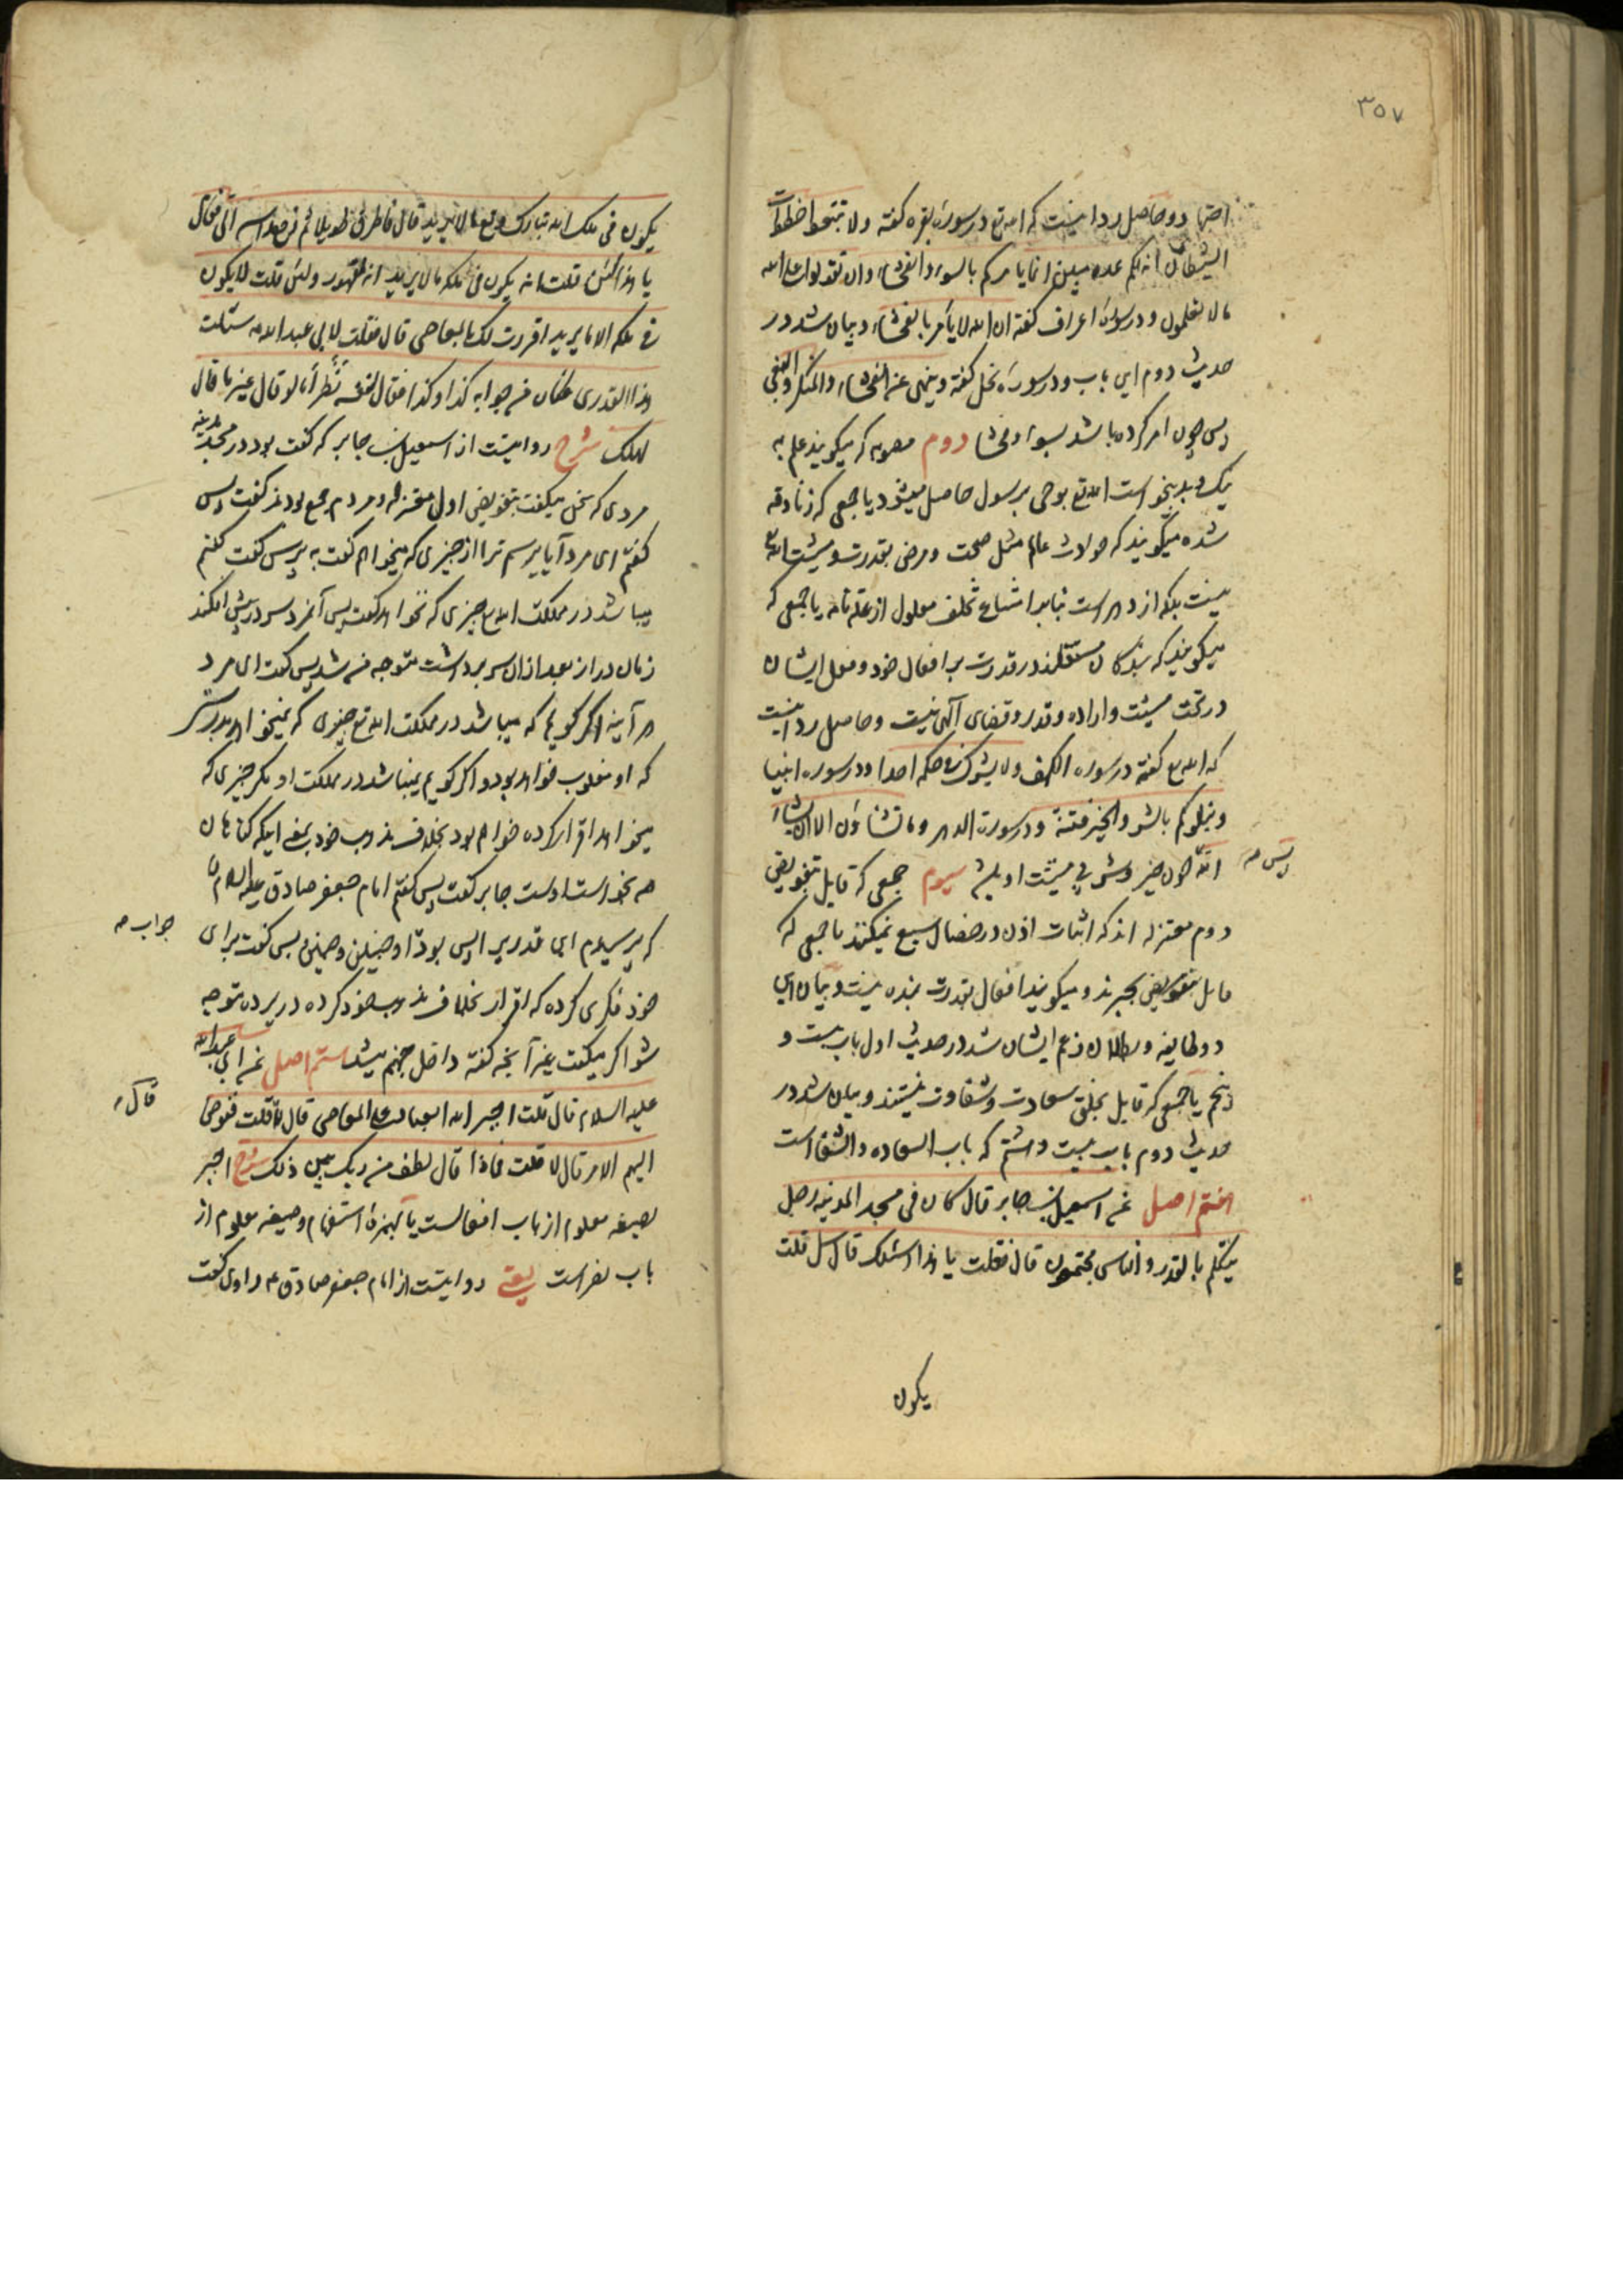 ۳۵۷
اجتهاد و حاصل رد اینست که الله تع در سورهٔ بقره گفته ولا تتبعوا خطوات
الشیطان انه لکم عدو مبین انما یامرکم بالسوء والفحشاء وان تقولوا علی الله
ما لا تعلمون و در سورهٔ اعراف گفته ان الله لا یامر بالفحشاء و بیان شد در
حدیث دوم این باب و در سورهٔ نحل گفته وینهی عن الفحشاء والمنکر والبغی
پس چون امر کرده باشد بسوء و فحشا دوم که میگویند علم به
نیک و بد بخواست الله تع بوحی بر رسول حاصل میشود یا جمعی که زنادقه
شده میگویند که حوادث عالم مثل صحت و مرض بقدرت و مشیت الله تع
نیست بلکه از دهر است بنابر امتناع تخلف معلول از علة تامه یا جمعی که
میگویند که بندگان مستقلند در قدرت بر افعال خود و فعل ایشان
در تحت مشیت و اراده و قدر و قضای آلهی نیست و حاصل رد اینست
که الله تع گفته در سوره الکهف ولا یشرک فی حکمه احدا و در سوره انبیا
ونبلوکم بالشر والخیر فتنة و در سورة الدهر وما تشاؤن الا ان یشاء
الله چون خیر و شر بی مشیت او باشد سیوم جمعی که قایل بتفویض
پس مه
دوم معتزله اند که اثبات اذن در خصال سبع نمیکنند یا جمعی که
قایل بتفویض بجبرند و میگویند افعال بقدرت بنده نیست و بیان این
دو طایفه و بطلان زعم ایشان شد در حدیث اول باب بیست و
پنجم یا جمعی که قایل بخلق سعادت و شقاوت نیستند و بیان شد در
حدیث دوم باب بیست و هشتم که باب السعاده والشقا است
هفتم اصل عن اسمعیل بن جابر قال کان فی مسجد المدینه رجل
یتکلم بالقدر والناس مجتمعون قال فقلت یا هذا اسئلک قال سل قلت
یکون
یکون فی ملک الله تبارک وتع ما لا یرید قال فاطرق طویلا ثم رفع راسه الی فقال
یا هذا لئن قلت انه یکون فی ملکه ما لا یرید انه لمقهور ولئن قلت لا یکون
فی ملکه الا ما یرید اقررت لک بالمعاصی قال فقلت لابی عبد الله مه سئلت
هذا القدری فکان من جوابه کذا وکذا فقال لنفسه نظر اما لو قال غیر ما قال
لهلک شرح روایتست از اسمعیل بن جابر که گفت بود در مسجد مدینه
مردی که سخن میگفت بتفویض اول معتزله و مردم جمع بودند گفت پس
گفتم ای مرد آیا پرسم ترا از چیزی که میخواهم گفت بپرس گفت گفتم
میباشد در مملکت الله تع چیزی که نخواهد گفت پس آنمرد سر در پیش افکند
زمان دراز بعد از ان سر برداشت متوجه من شد پس گفت ای مرد
هر آینه اگر گویم که میباشد در مملکت الله تع چیزی که نمیخواهد بدرستی
که او مغلوب خواهد بود و اگر گویم نمیباشد در مملکت او مگر چیزی که
میخواهد اقرار کرده خواهم بود بخلاف مذهب خود یعنی اینکه گناهان
هم بخواست اوست جابر گفت پس گفتم امام جعفر صادق علیه السلام را
که پرسیدم این قدری را پس بود از او چنین و چنین پس گفت برای
جواب مه
خود فکری کرده که اقرار بخلاف مذهب خود کرده در پرده متوجه
شو اگر میگفت غیر آنچه گفته داخل جهنم میشد هشتم اصل عن ابی عبد الله
علیه السلام قال قلت اجبر الله العباد علی المعاصی قال لا قلت ففوض
قال مه
الیهم الامر قال لا قلت فماذا قال لطف من ربک بین ذلک شرح اجبر
بصیغه معلوم از باب افعالست یا بهمزهٔ استفهام و صیغه معلوم از
باب نصر است یعنی روایتست از امام جعفر صادق عه راوی گفت